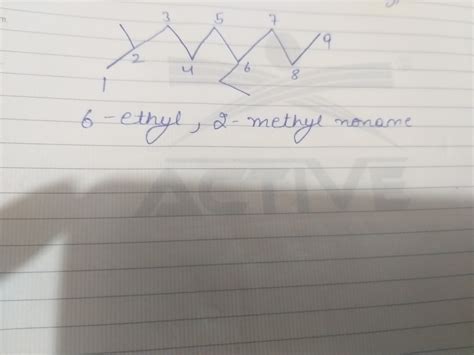 3 5 7 9
2 4 6 8
1
6-ethyl, 2-methyl nonane
ACTIVE